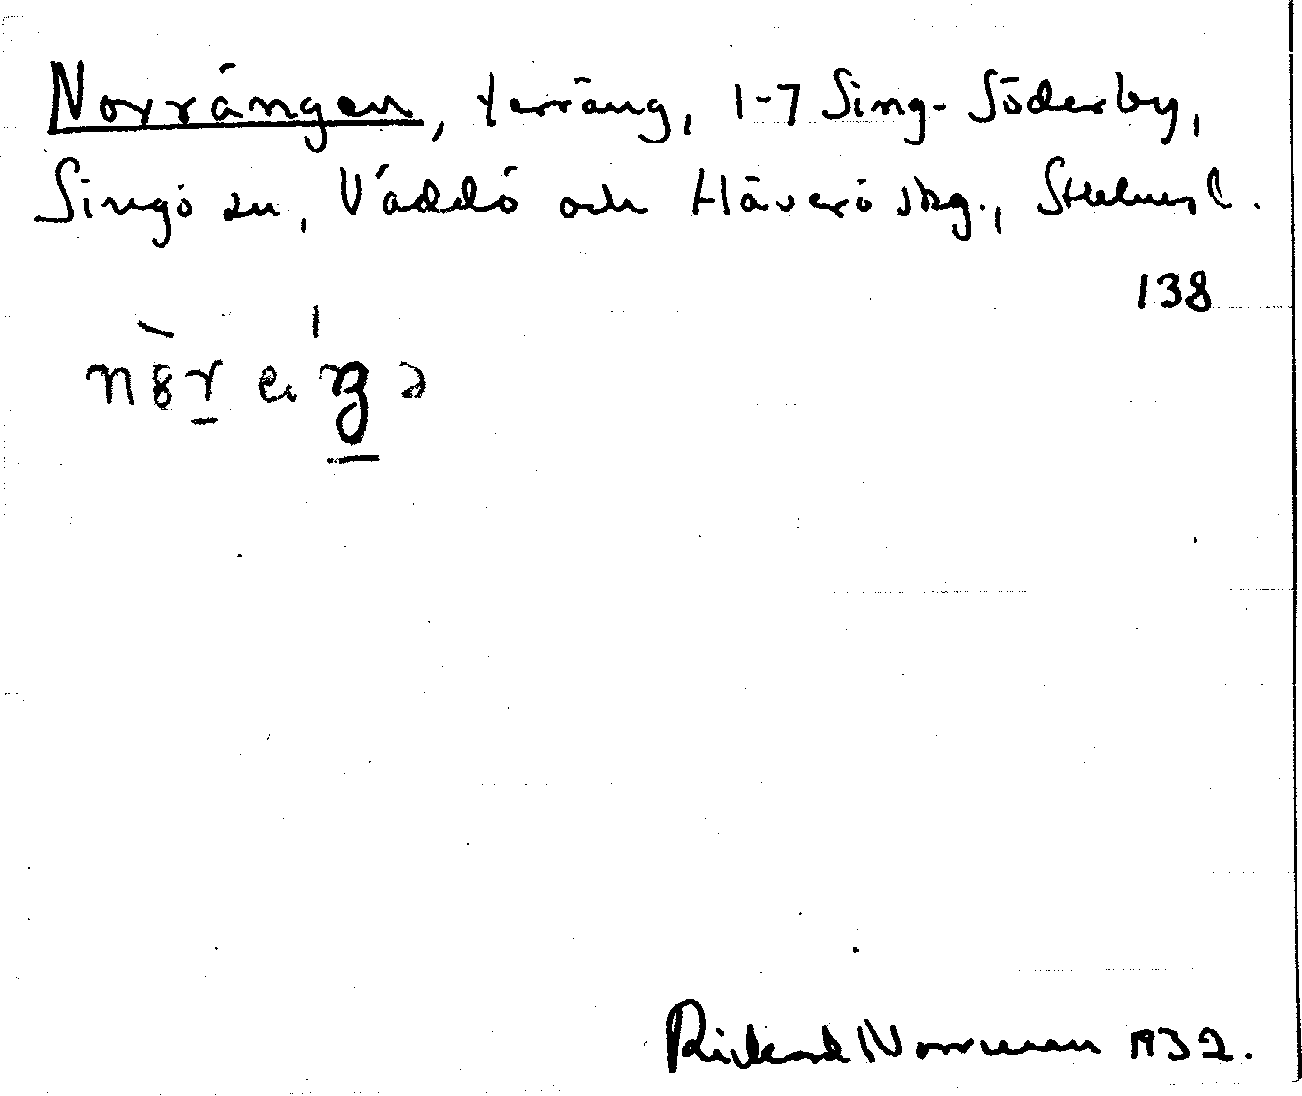 Norrängen, terräng, 1-7 Sing-Söderby,
Singö sn, Väddö och Häverö skg., Sthlms l.
138
Rickard Norrman 1932.